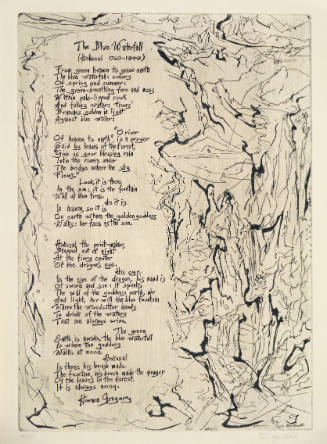 The Blue Waterfall
(Hokusai 1760-1849)
From green heaven to green earth
The blue waterfall
Of spring and summer:
The green-breathing fern and moss
Within pale-lipped rock
And falling waters
golden in light
Against blue water:
"O river
Of heaven to earth" is a prayer
by leaves of the forest,
"Give us your blessing
Into the rivers under
The bridge where the sky
Flows."
Look, it is there
In the air: it is the fountain
Wall of blue fire:
As it is
In heaven, so it is
On earth where the golden goddess
Walks: her face is the sun.
Hokusai, the print-maker,
Stepped out of night
At the finger center
Of the dragon's eye:
His eye:
In the eye of the dragon, his mind is
Of sword and sun: it speaks
The will of the goddess earth, air
And light, her will the blue fountain
Where the woodcutter stands
To drink of the waters
That are always wine.
The green
Earth is awake, the blue waterfall
Is where the goddess
Walks at noon.
Hokusai
Is there, his brush made
The fountain, his brush made the prayer
Of the leaves in the forest.
It is always noon.
Horace Gregory